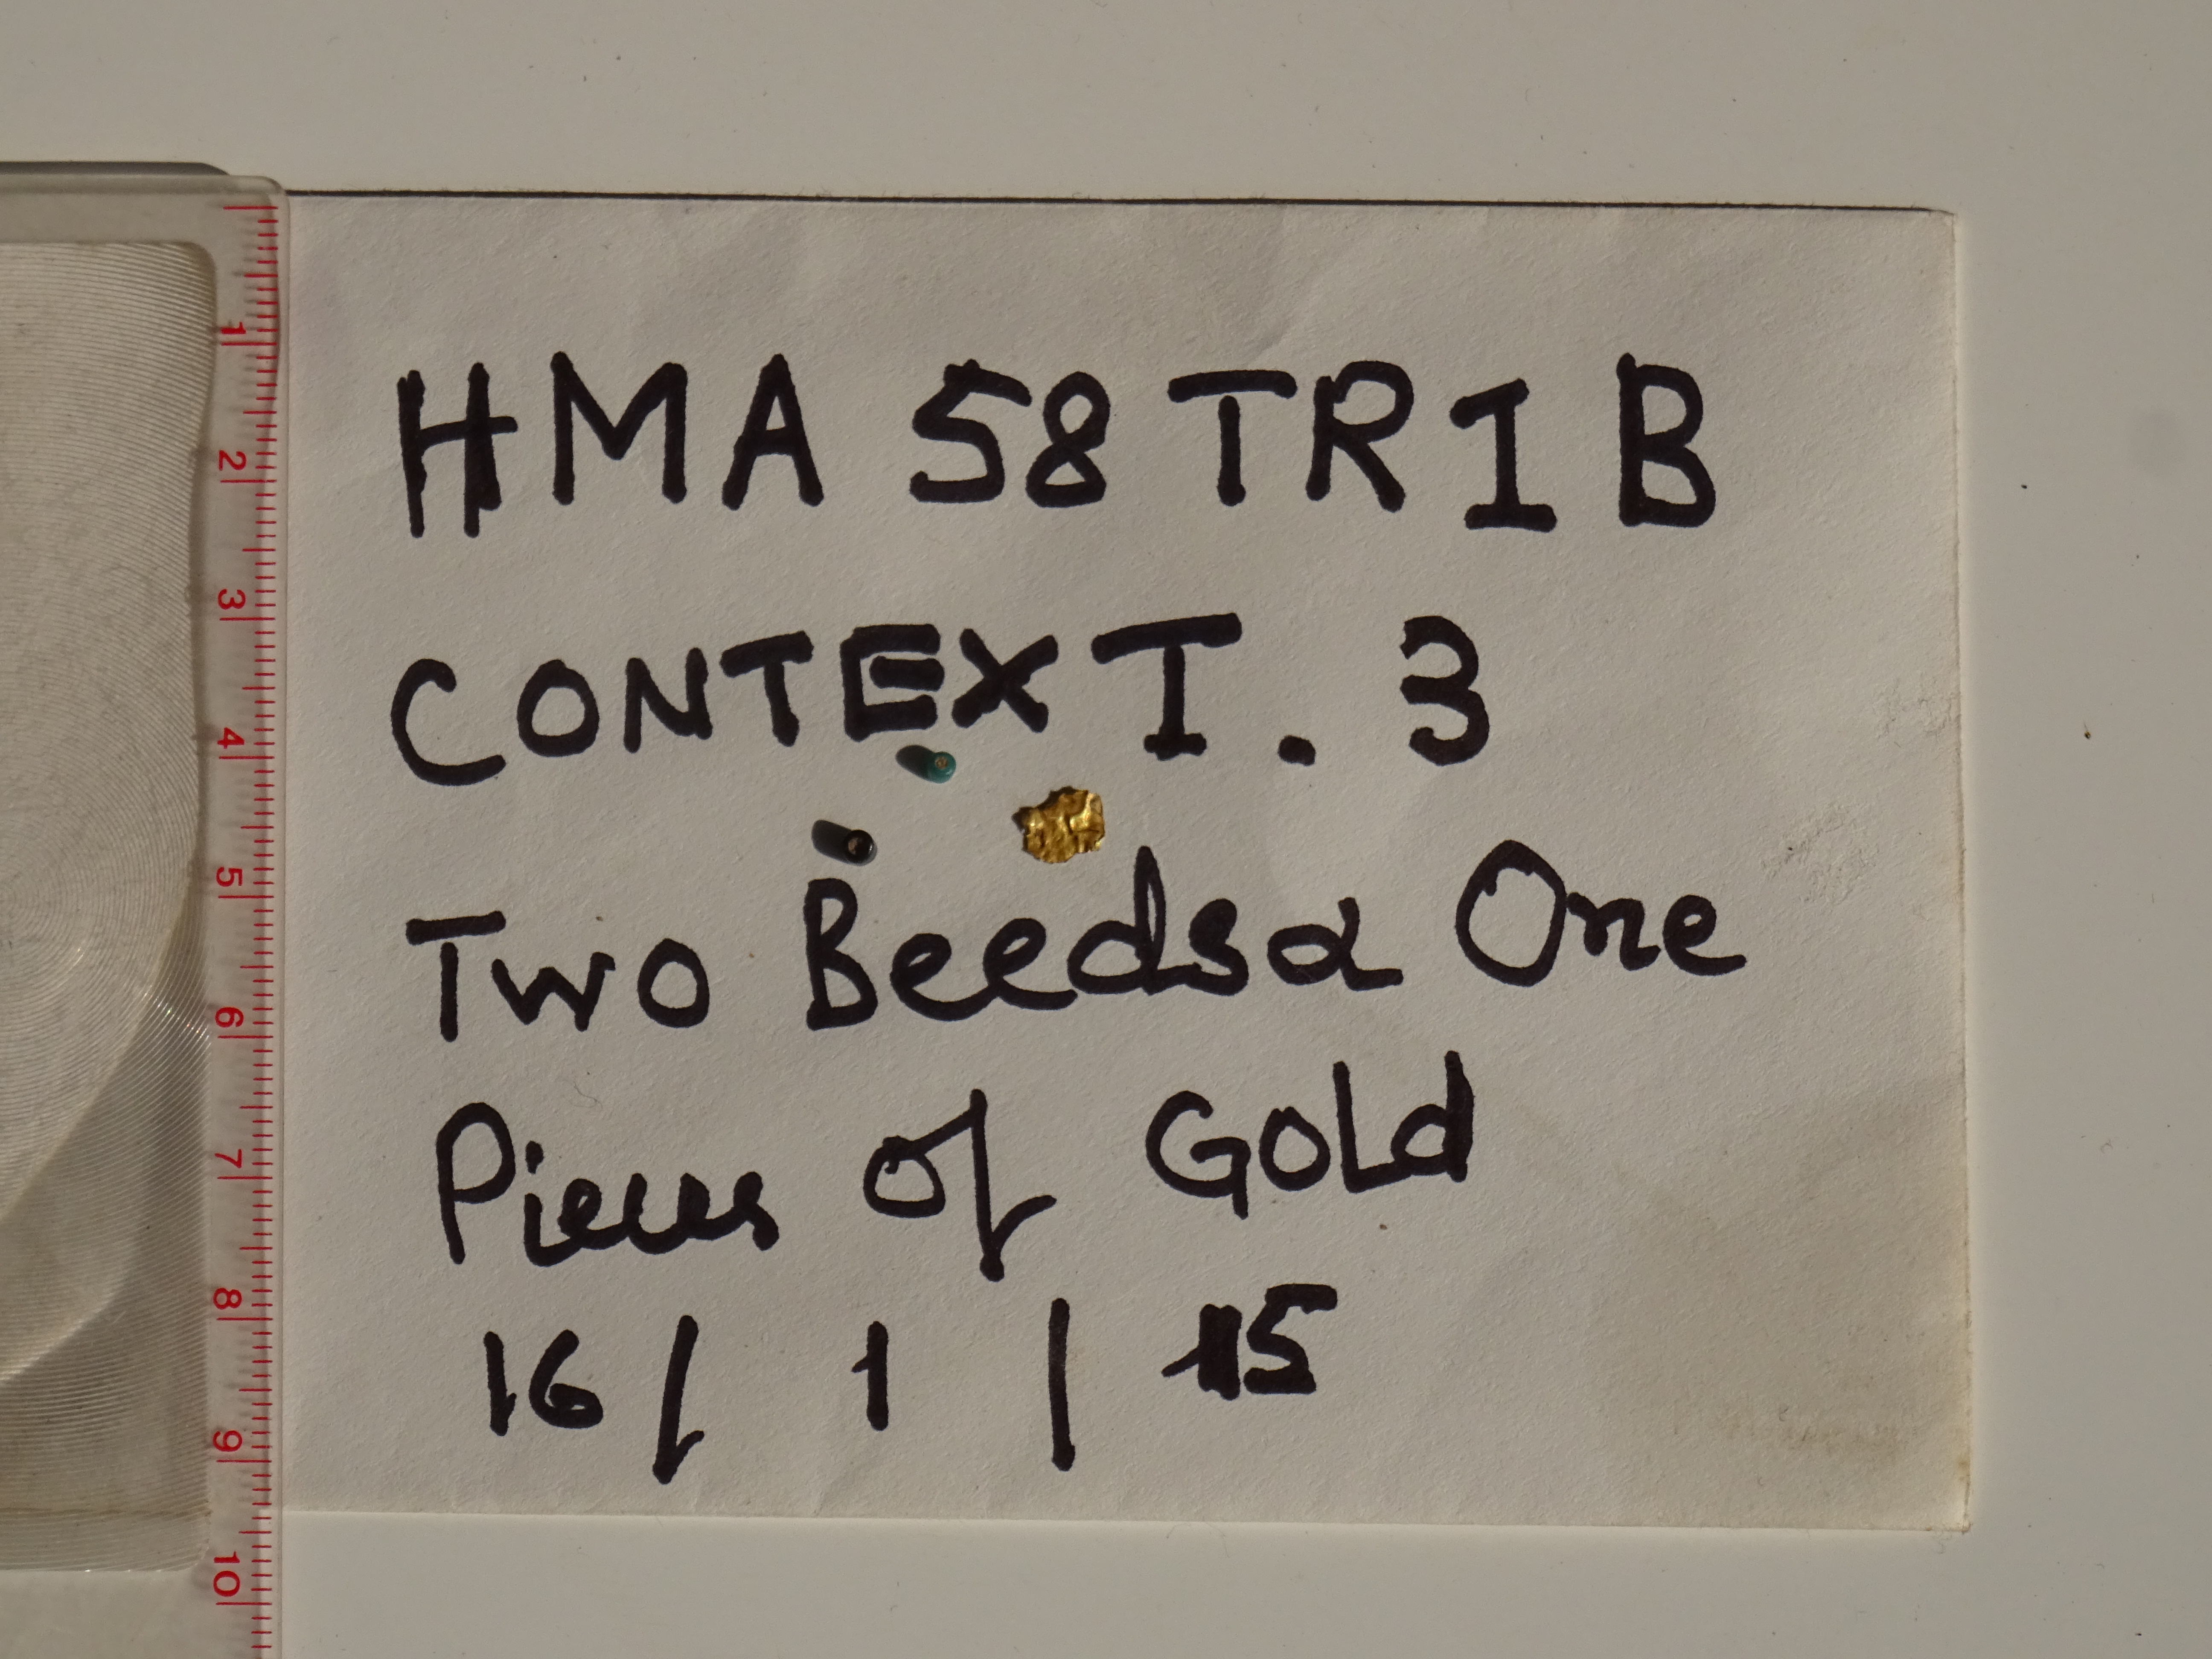 1
2
3
4
5
6
7
8
9
10
HMA 58 TR1 B
CONTEXT. 3
Two Beeds & One
Pieces of Gold
16 / 1 / 15